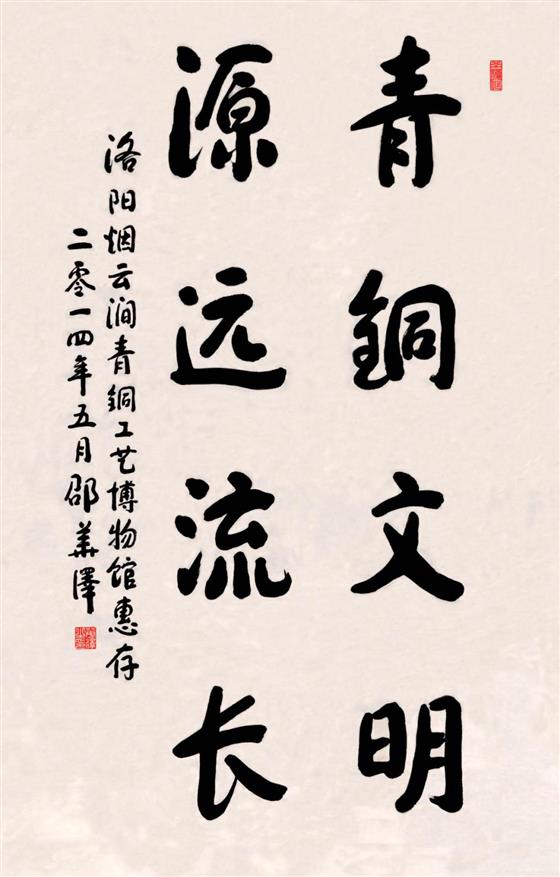 青銅文明
源远流长
洛阳烟云涧青銅工艺博物馆惠存
二零一四年五月邵華澤